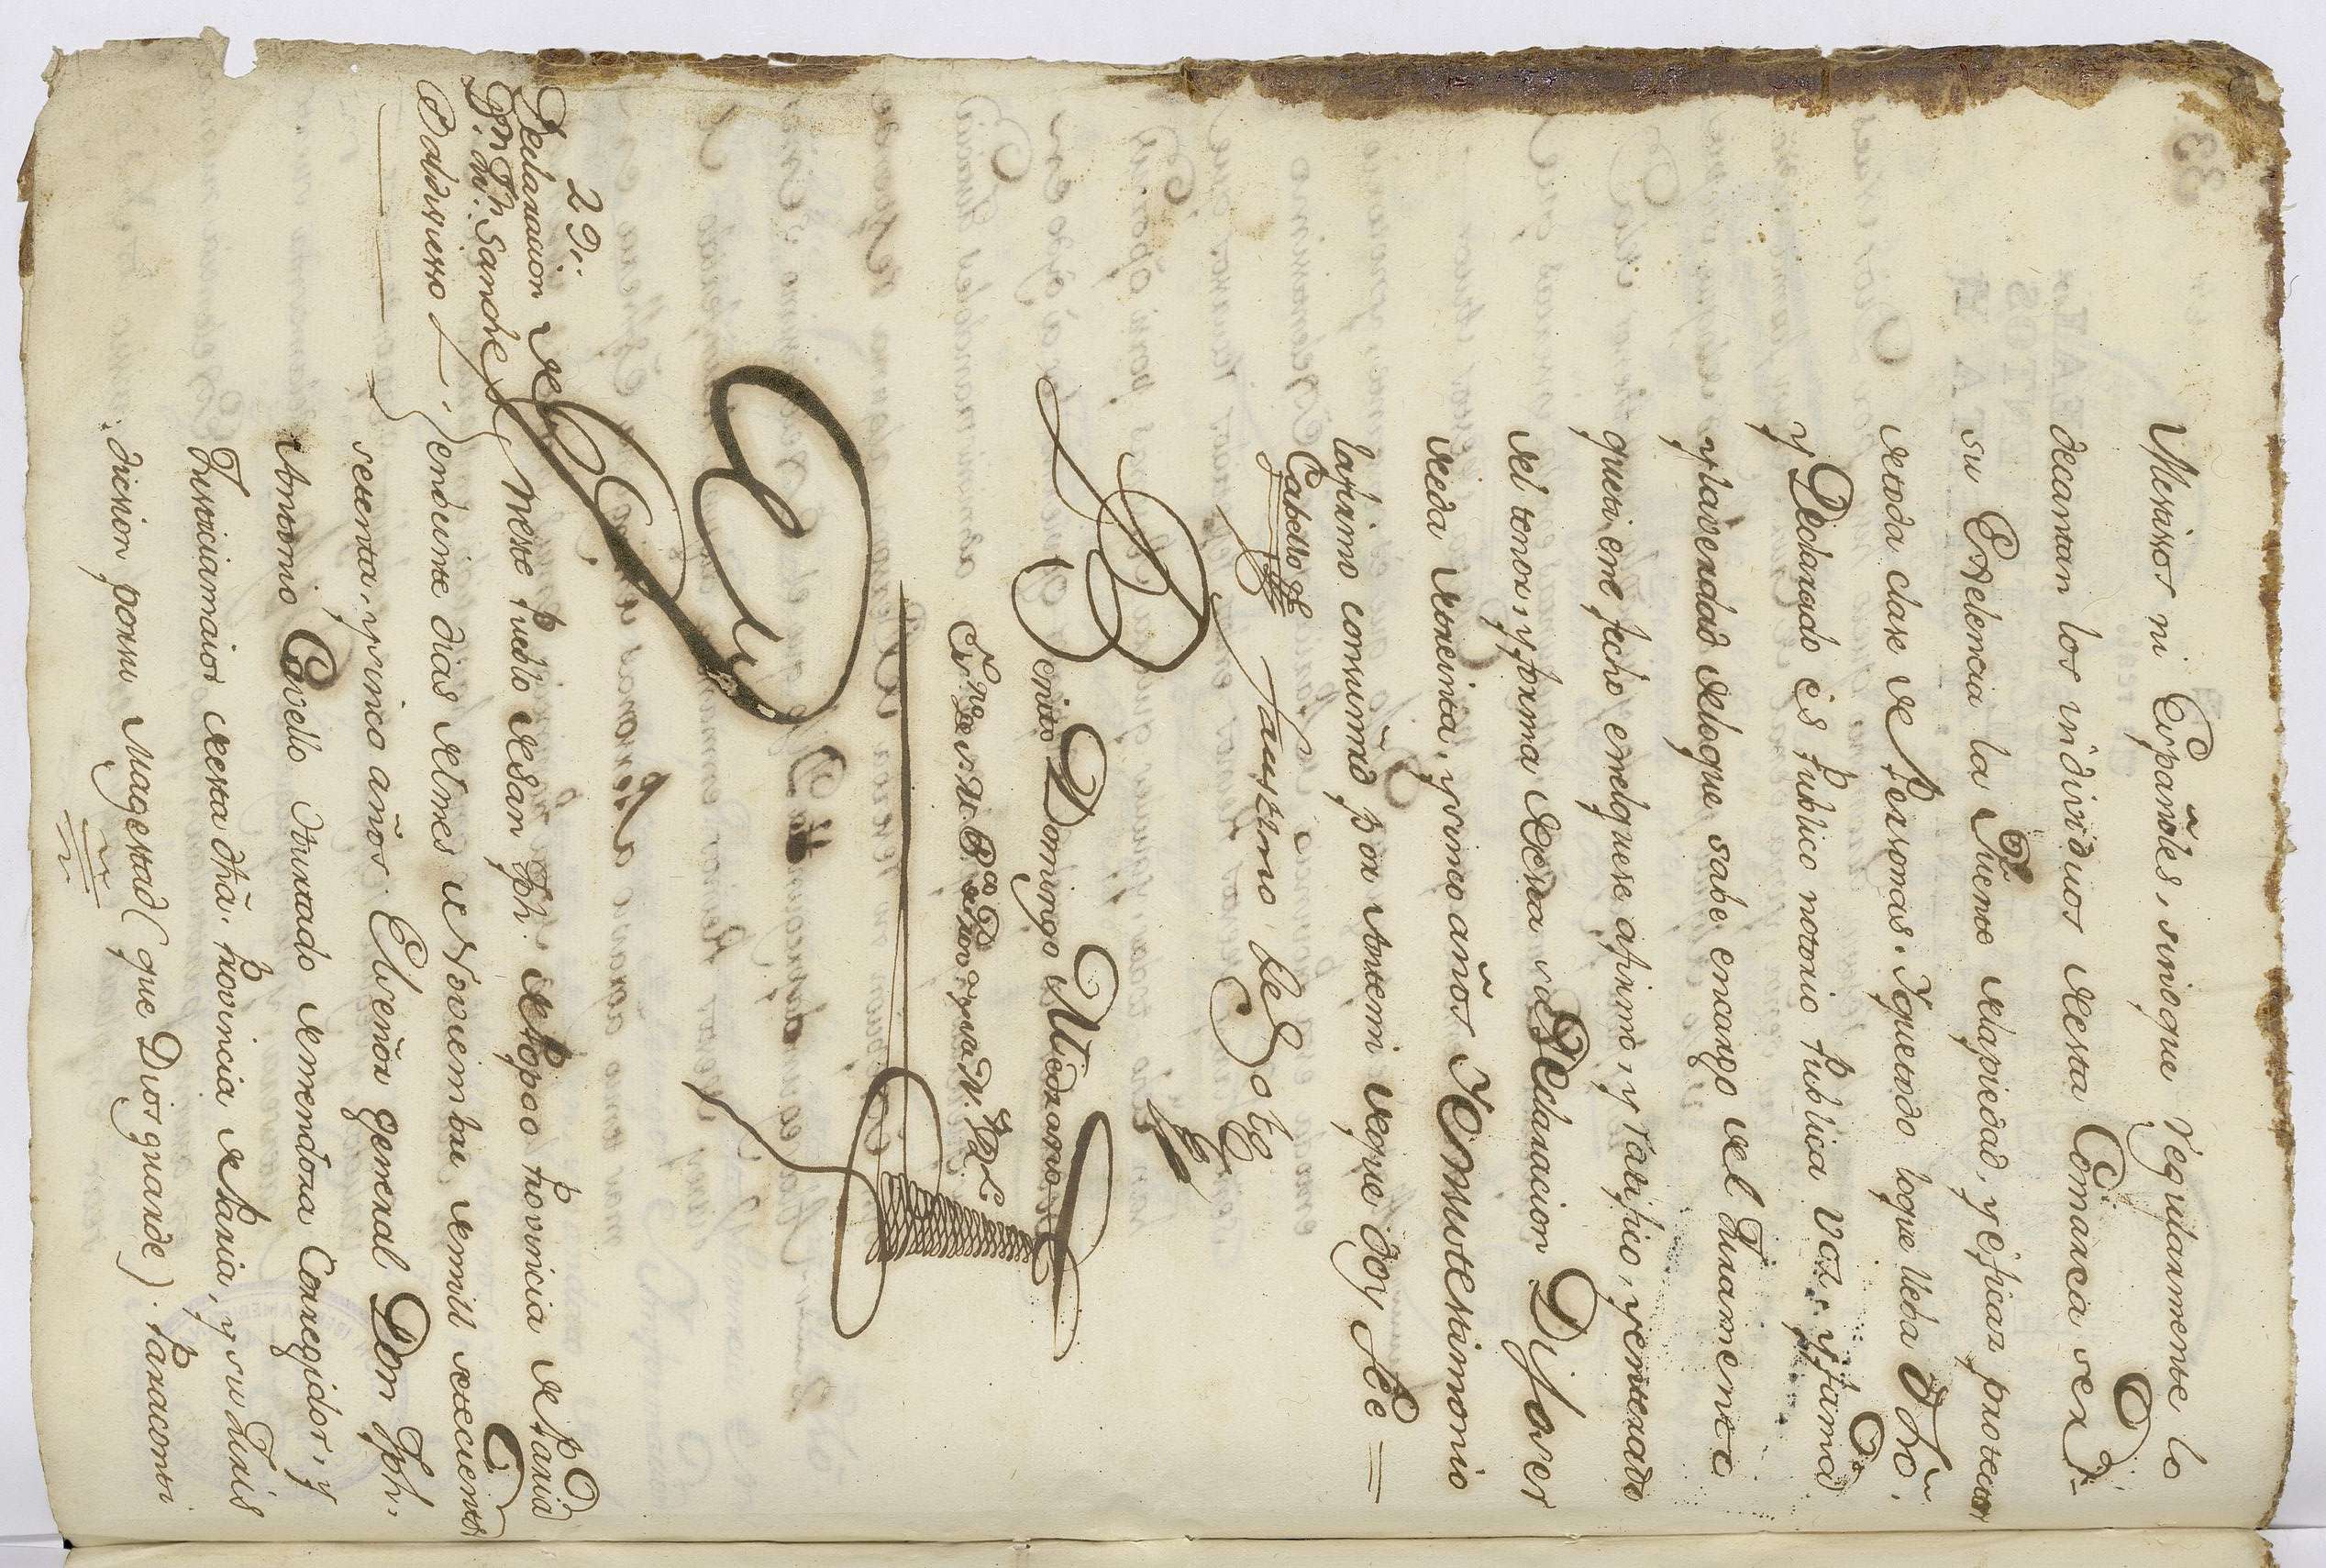 Mestisos ni Españoles, sino que regularmente lo
decantan los individuos desta Comarca ser
su Exelencia la Fuente dela piedad, y eficaz protector
detoda clase de Personas. Y que todo loque lleba dho.
y Declarado es Publico notorio Publica voz, y fama
y la verdad deloque sabe encargo del Juramento
que tiene fecho enelquese afirmó, y ratificó, y enterado
del tenor, y forma desta su Declaracion Dijo ser
deeda desesenta, y sinco años Y en su testimonio
lafirmo consumd por Antemi deque doy feé =
Cabello
Faustino de Soto
Benito Domingo Medrano
Essno de su M.
29.
Declaracion de
Dn. Jph Sanche
Baldivieso
Neste Pueblo de San Jph. de Popao Provincia de Paria
enveinte dias delmes de Noviembre demill setecientos
sesenta, y sinco años El señor general Don Jph.
Antonio Cavello Jurado demendoza Corregidor, y
Justiciamaior desta dha. Provincia de Paria, y su Juris
dicsion porsu Magestad (que Dios guarde). Paracomti